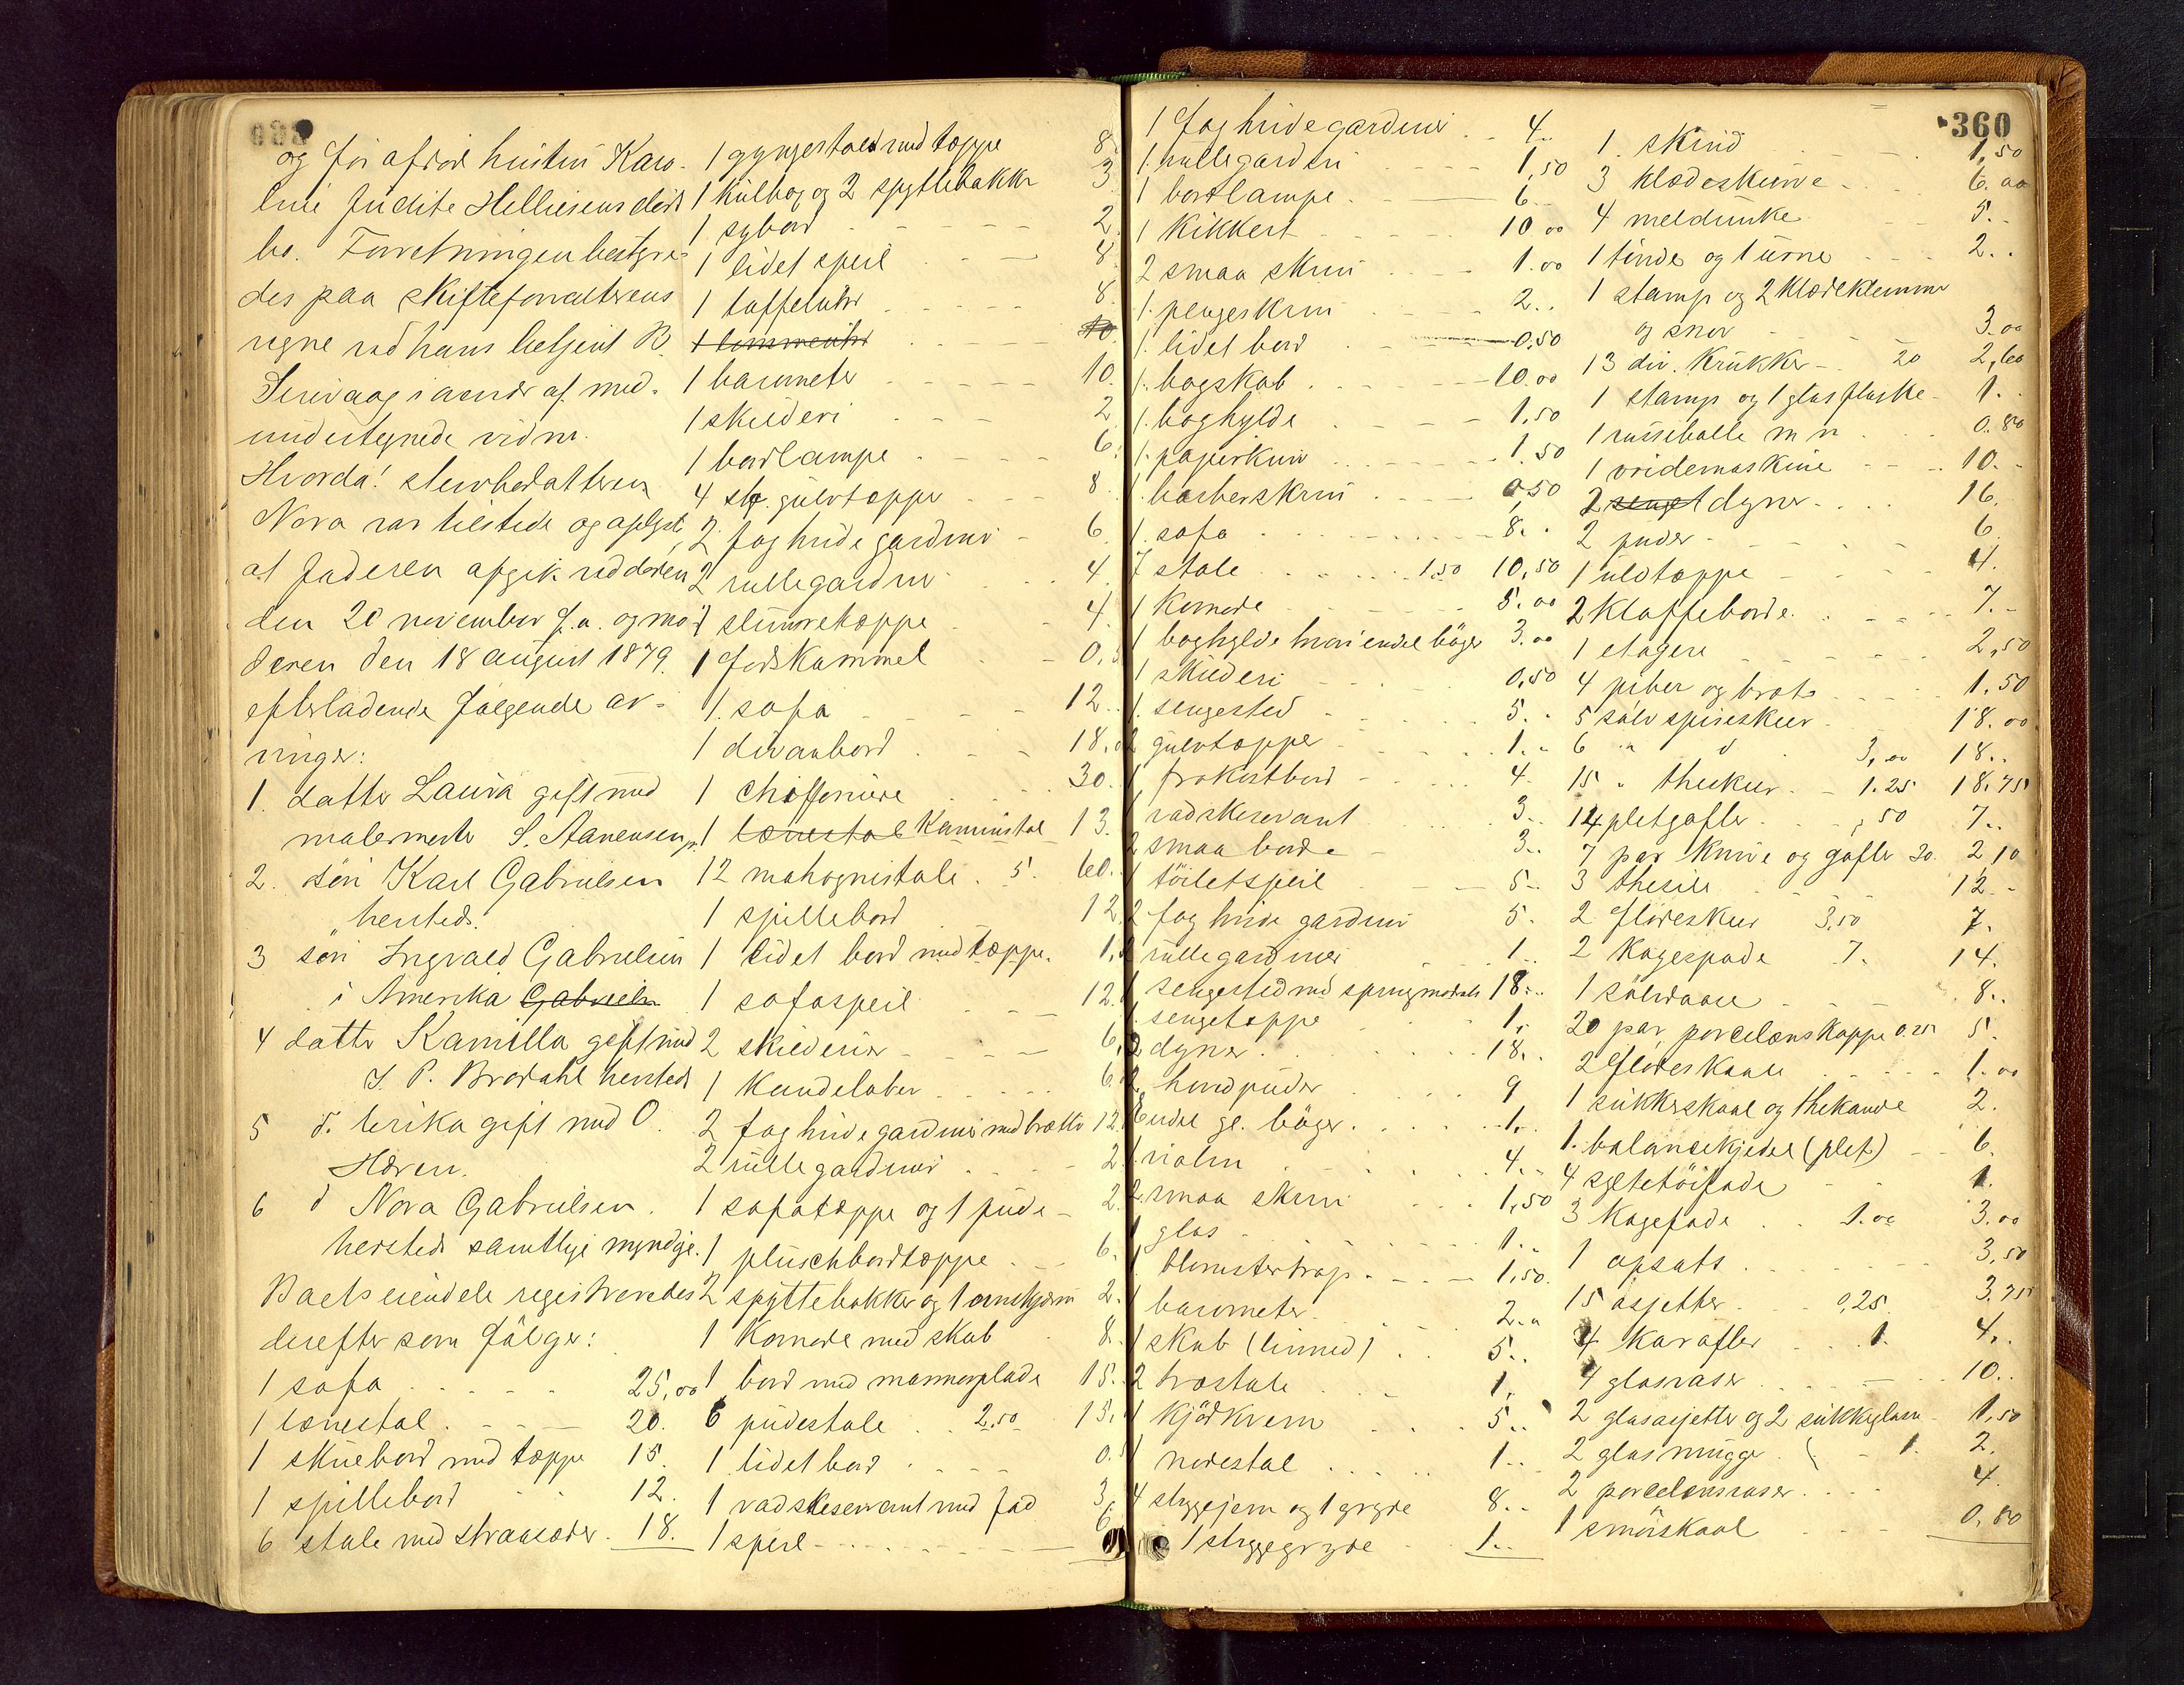 og før afdøde hustru Karo-
line Judite Helliesens døds
bo. Forretningen bestyre-
des paa skifteforvalterens
vegne ved hans betjent B.
undertegnede vidne.
Hvorda! stervbodatteren
Nora var tilstede og oplyst
at faderen afgik ved døden
den 20 november f.a. og mo-
deren den 18 august 1879
efterladende følgende ar-
vinger:
1. datter Laura gift med
malermester S. Aanensen
2. søn Karl Gabrielsen
hersteds.
3 søn Ingvald Gabrielsen
i Amerika Gabrielsen
4 datter Kamilla gift med
J. P. Brodahl hersteds
5 d. Erika gift med O.
Hoven.
6 d Nora Gabrielsen.
hersteds samtlige myndige.
Boets eiendele registreredes
derefter som følger:
1 sofa 25,00
1 lænestol 20.
1 skuebord med tæppe 15.
1 spillebord 12.
6 stole med straasæder 18.
1 gyngestol med tæppe 8
1 kulbox og 2 spyttebakker 3
1 sybord 2
1 lidet speil 8
1 taffeluhr 8.
1 lommeuhr 10
1 barometer 10.
1 skilderi 2
1 bordlampe 6.
4 stk. gulvtæpper 8
2 fag hvide gardiner 6.
2 rullegardiner 4
1 slumretæppe 4.
1 fodskammel 0,5
1 sofa 12.
1 divanbord 18.
1 chiffoniere 30.
1 lænestol Kaminstol 13.
12 mahognistole 5. 60.
1 spillebord 12
1 lidet bord med tæppe. 1,
1 sofaspeil 12
2 skilderier 6,
1 Kandelaber 6.
2 fag hvide gardiner med brætter 12.
2 rullegardiner 2
1 sofatæppe og 1 pude 2
1 pluschbordtæppe 6.
2 spyttebakker og 1 ovnskjærm 2.
1 Komode med skab 8.
1 bord med marmorplade 15.
6 pudestole 2.50 15.
1 lidet bord 0.
1 vadskeservant med fad 3,
1 speil 6
360
1 fag hvide gardiner 4..
1. rullegardin 1,50
1 bordlampe 6..
1 Kikkert 10.00
2 smaa skrin 1.00
1. pengeskrin 2..
1. lidet bord 0,50
1. bogskab 10.00
1. boghylde 1,50
1. papirkurv 1.50
1. barberskrin 0,50
1. sofa 8..
7 stole 1.50 10,50
1 Komode 5.00
1 boghylde hvori endel bøger 3.00
1 skilderi 0,50
1. sengested 5..
2 gulvtæpper 1..
1 frokostbord 4.
1 vadskeservant 3..
2 smaa borde 3..
1 toiletspeil 5..
2 fag hvide gardiner 5.
2 rullegardiner 1..
1 sengested med springmadrats 18..
1. sengetæppe 1.
2 dyner 18..
2 hovedpuder 9
Endel gl. bøger 1.
1. violin 4..
2 smaa skrin 1,50
1 glas 1..
1. blomstertrap 1,50.
1 barometer 2..
1 skab (linned) 5..
2 træstole 1.
1 kjødkvern 5..
1 nodestol 1..
4 strygejern og 1 gryde 8..
1 strygegryde 1..
1. skind 1,50
3 klædeskurve 6.00
4 meldunke 5..
1 tønde og 1 urne 2..
1 stamp og 2 klædeklemmer
og snor 3.00
13 div. Krukker 20 2,60
1 stamp og 1 glasflaske 1.
1 russebolle m m 0.80
1 vridemaskine 10.
2 senge dyner 16.
2 puder 6
1 uldtæppe 4.
2 Klaffeborde 7.
1 etagere 2,50
4 piber og bræt 1.50
5 sølv spiseskeer 18.00
6 " d 3,00 18..
15 " theskeer 1.25 18.75
14 pletgafler ,50 7..
7 par Knive og gafler 30. 2,10
3 thesile 12
2 flødeskeer 3,50 7.
2 Kagespade 7. 14.
1 sølvdaase 8..
20 par porcelæns Koppe 0.25 5.
2 flødeskaale 1.00
1 sukkerskaal og thekande 2.
1. balancekjedel (plet) 6.
4 syltetøifade 1.
3 Kagefade 1.00 3.00
1 opsats 3,50
15 asjetter 0,25 3.75
4 Karafler 1. 4..
4 glasvaser 10..
2 glasasjetter og 2 sukkerglase 1,50
2 glasmugge 1. 2.
2 porcelænsvaser 4.
1 smørskaal 0,80